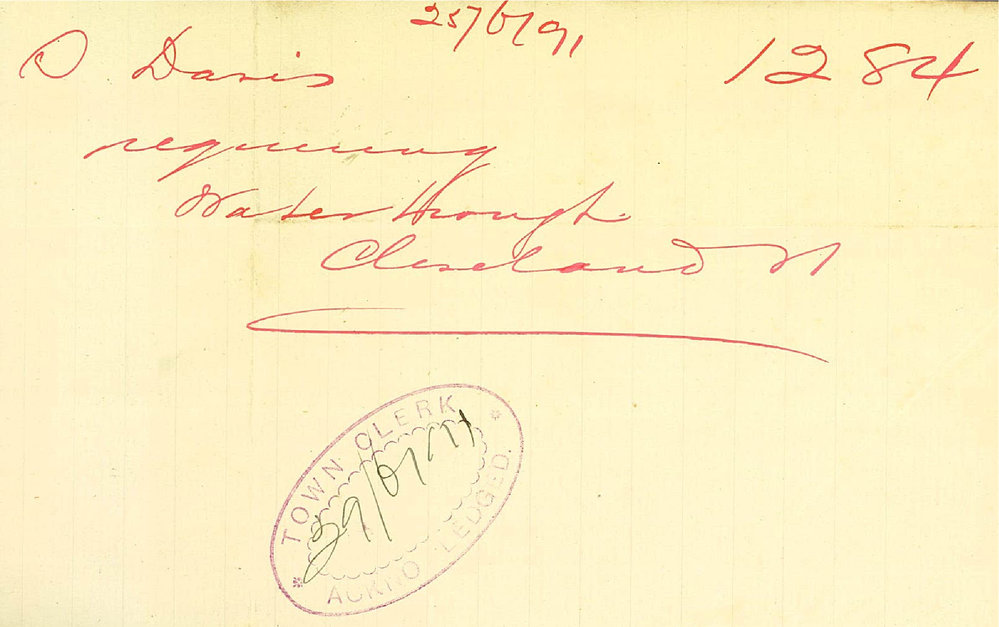 25/6/91
D Davis 1284
requiring
Water trough
Cleveland St
TOWN CLERK
29/6/91
ACKNO LEDGED.